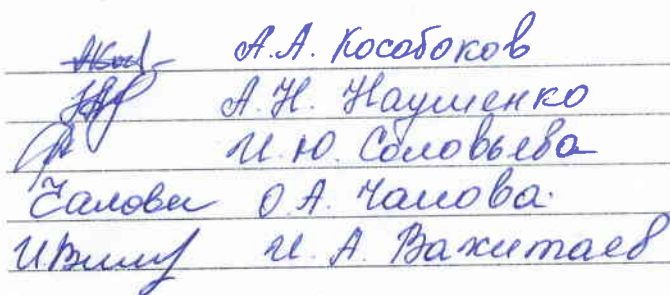 А.А. Кособоков
А.Н. Науменко
И.Ю. Соловьева
О.А. Чалова
И.А. Вахитаев